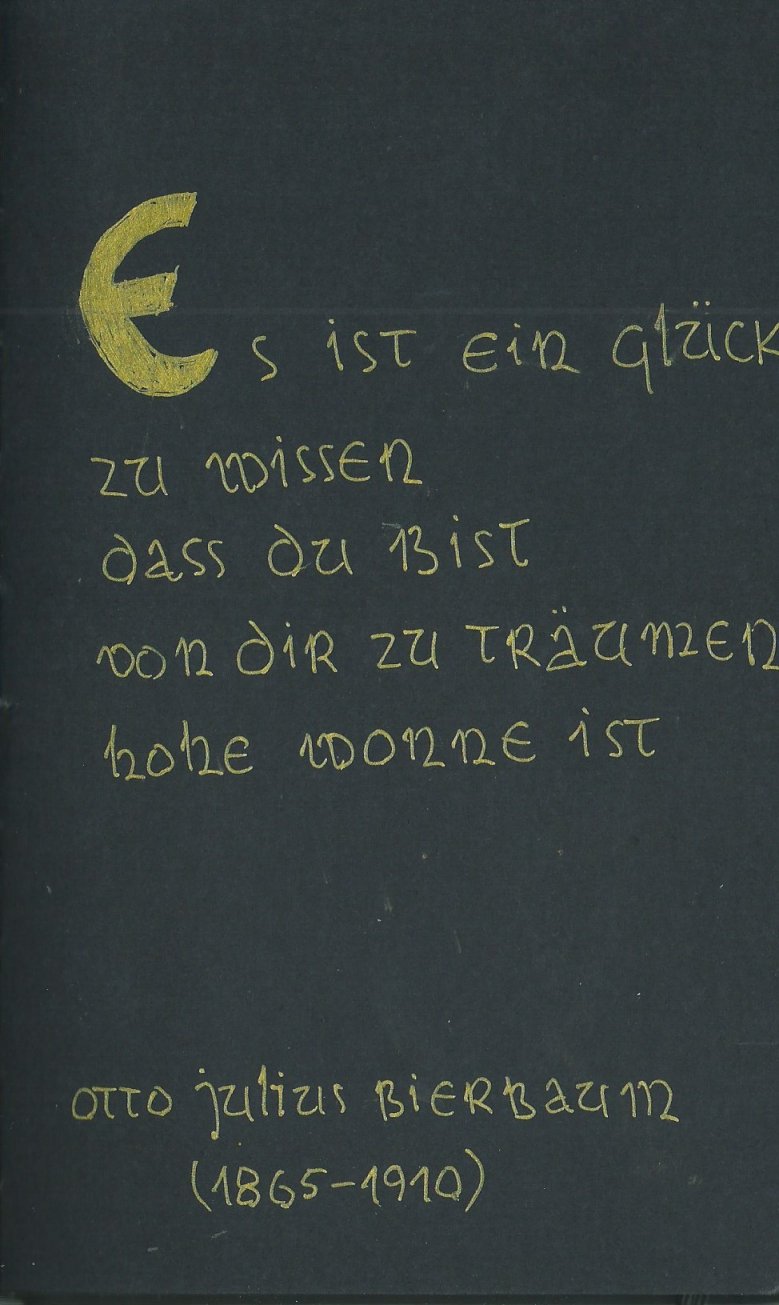 Es ist ein Glück
zu wissen
dass du bist
von dir zu träumen
hohe Wonne ist
Otto Julius Bierbaum
(1865-1910)